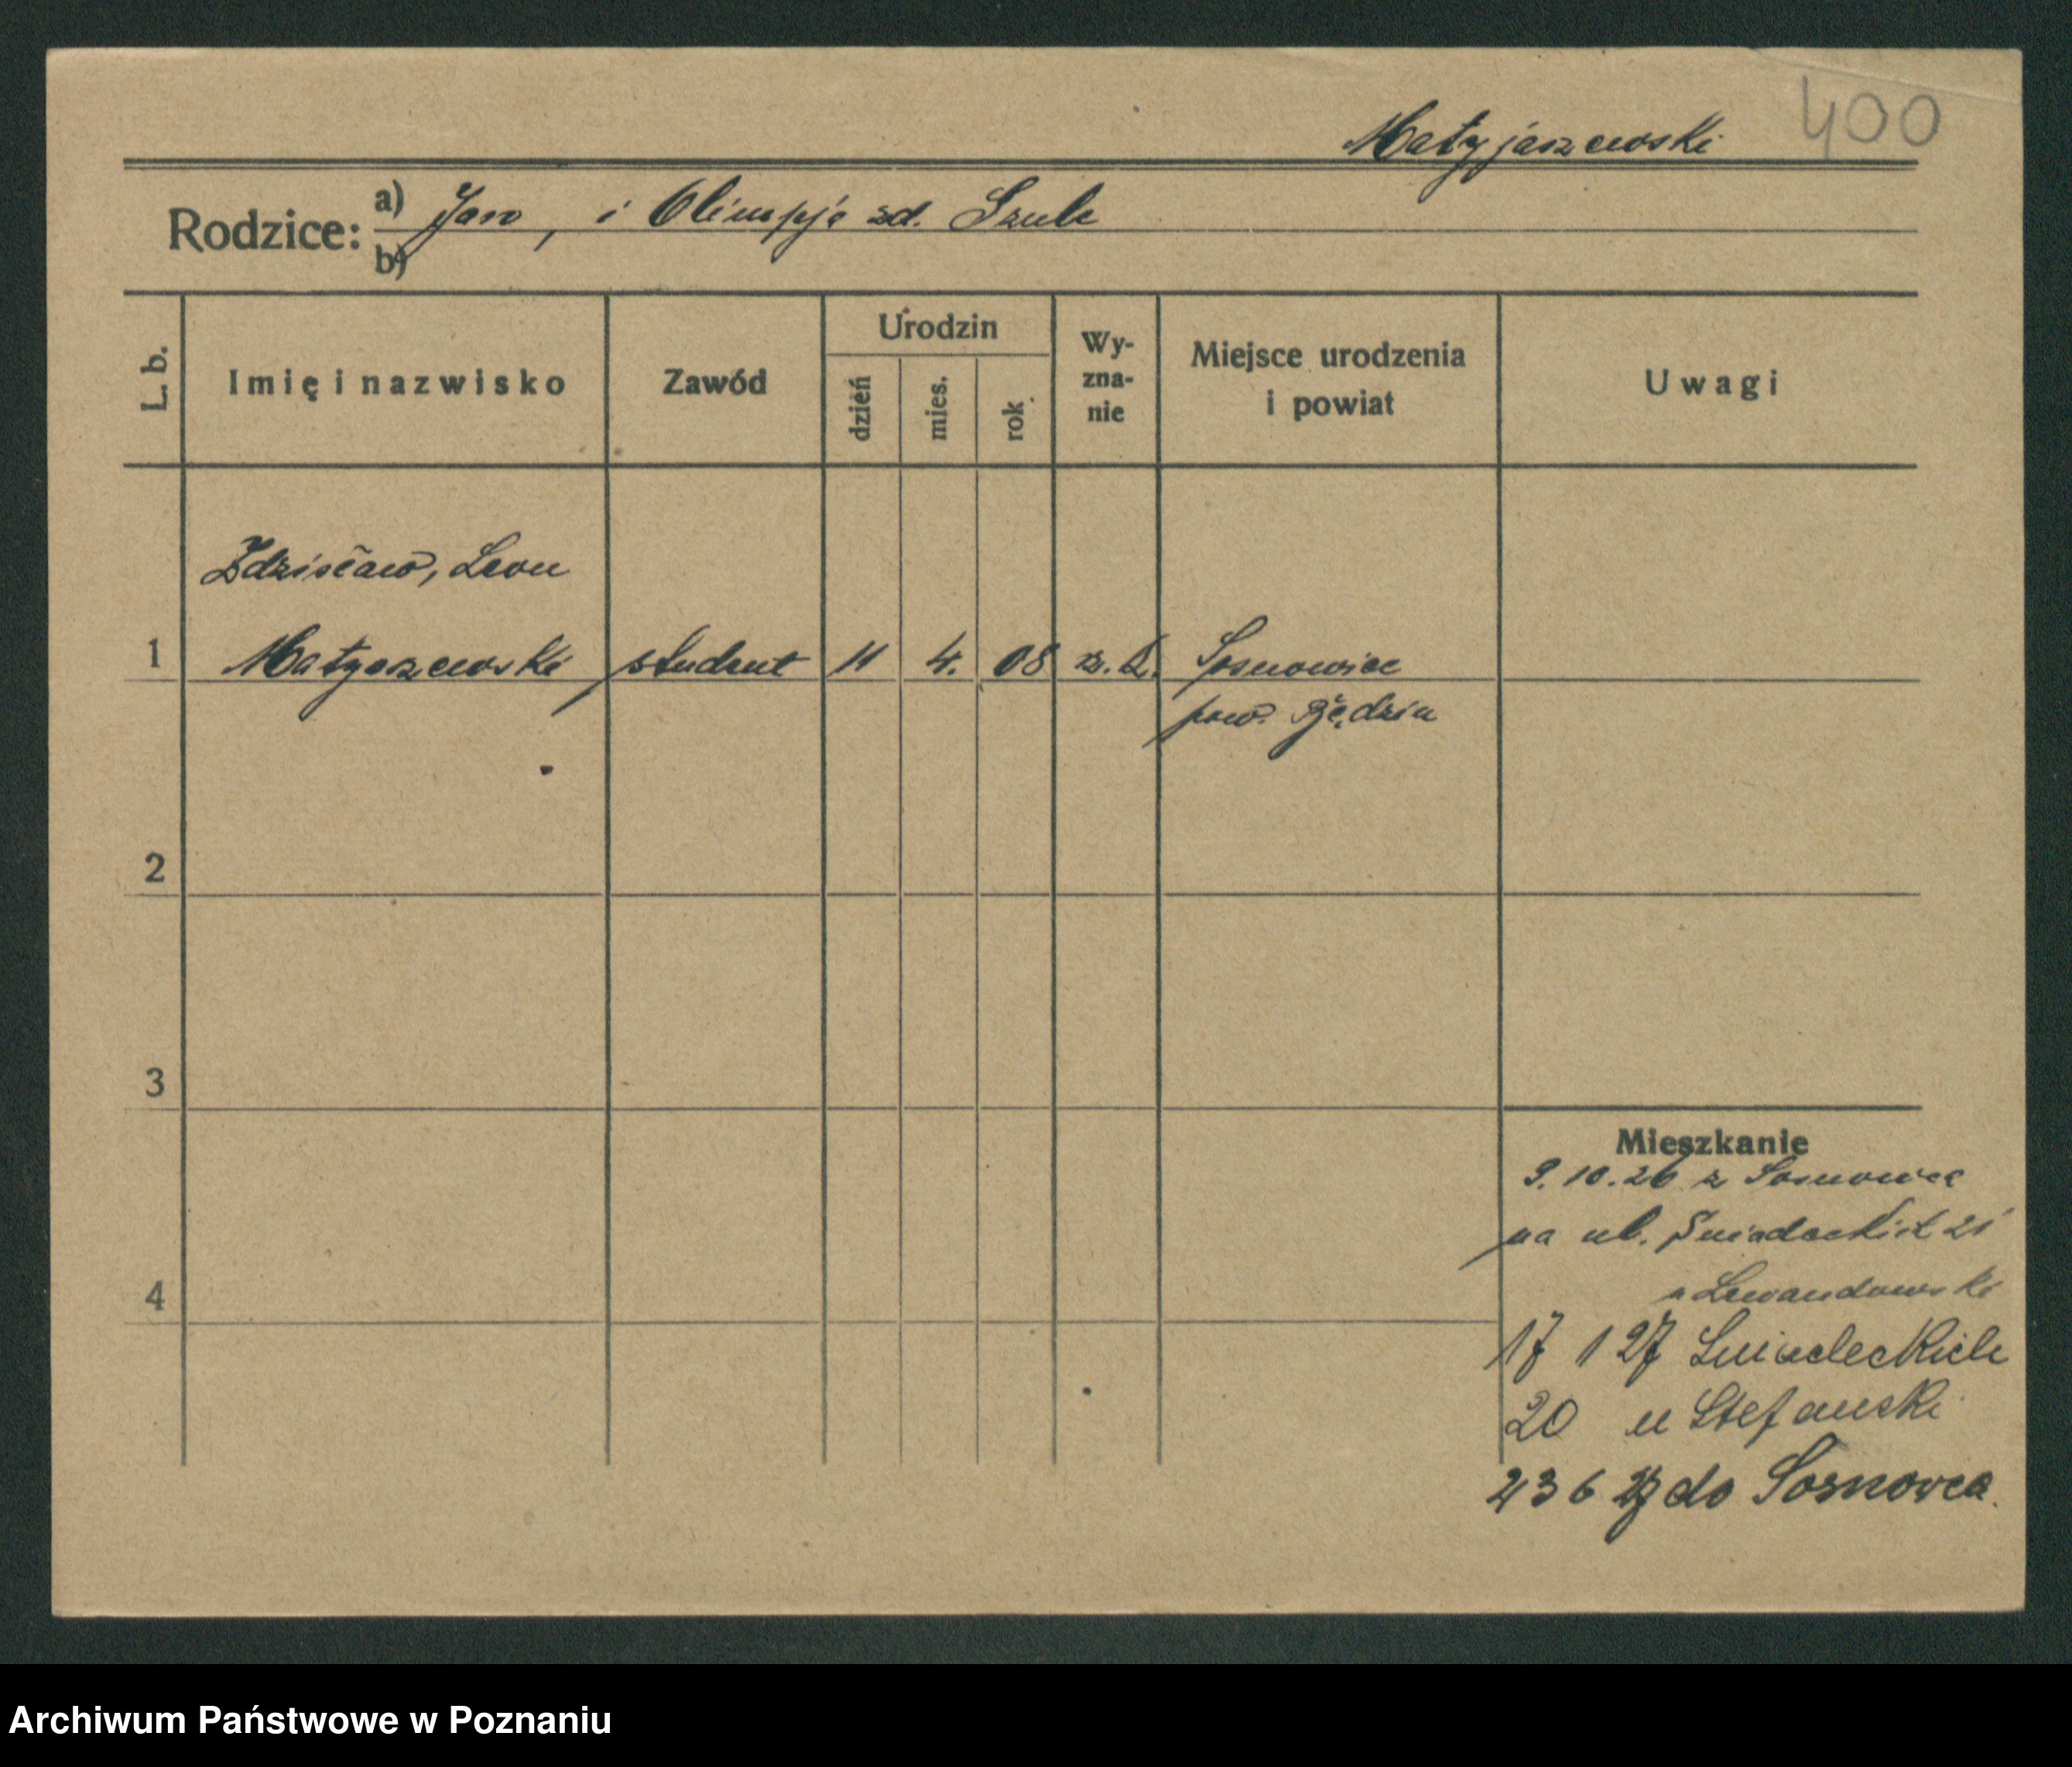 400
Matyjaszewski
Rodzice: a) Jan, i Olimpja zd. Szulc
b)
L. b.
Imię i nazwisko
Zawód
Urodzin
dzień
mies.
rok
Wy-
zna-
nie
Miejsce urodzenia
i powiat
Uwagi
Zdzisław, Leon
1 Matyaszewski student 11 4. 08 rz. k. Sosnowice
pow. Będzin
2
3
4
Mieszkanie
9. 10. 26 z Sosnowice
na ul. Śniadeckich 21
u Lewandowski
17 1 27 Sniadeckich
20 u Stefanski
23 6 27 do Sosnovca.
Archiwum Państwowe w Poznaniu